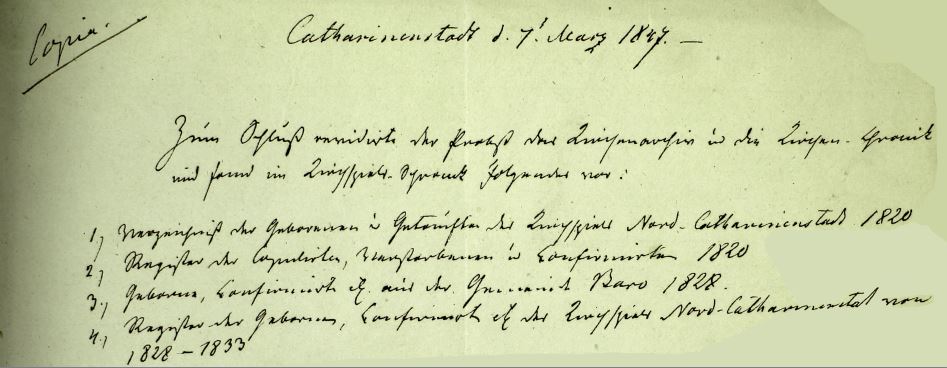 Copia.
Catharinenstadt d. 7. März 1847. —
Zum Schluß revidirte der Probst das Kirchenarchiv u die Kirchen-Chronik
und fand im Kirchspiels-Schrank folgendes vor:
1.) Verzeichniß der Geborenen u Getauften des Kirchspiels Nord-Catharinenstadt 1820
2.) Register der Copulirten, Verstorbenen u Confirmirten 1820
3.) Geborne, Confirmirte aus der Gemeinde Baro 1828.
4.) Register der Gebornen, Confirmirte des Kirchspiels Nord-Catharinenstadt von
1828 – 1833